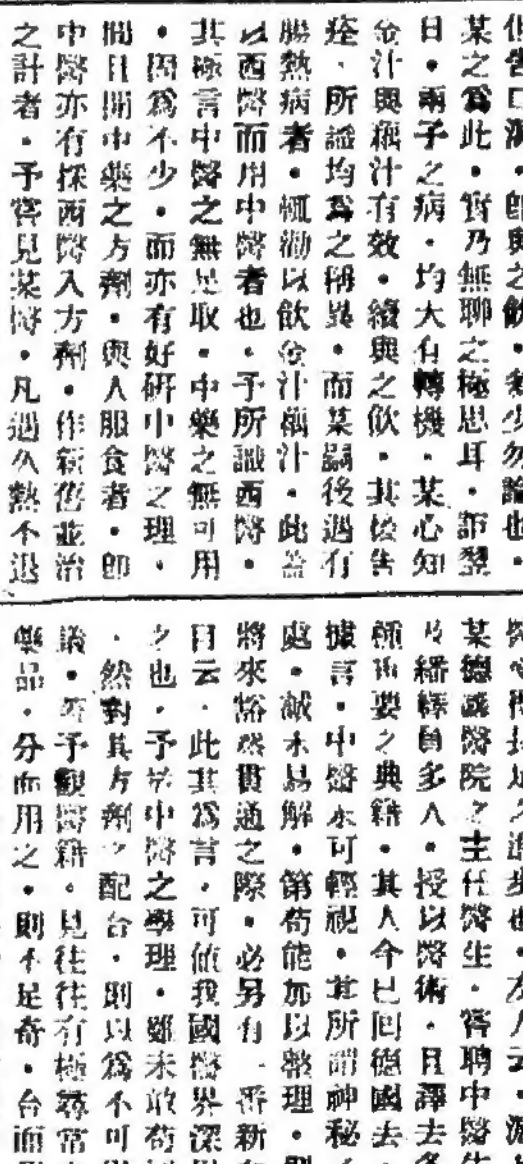 告口渴。即與之飲。多少勿論也。
某之爲此。實乃無聊之極思耳。詎翌
日。兩子之病。均大有轉機。某心知
金汁與藕汁有效。續與之飲。其後告
痊。所識均爲之稱異。而某嗣後遇有
腸熱病者。輒勸以飲金汁藕汁。此蓋
以西醫而用中醫者也。予所識西醫。
其極言中醫之無足取。中藥之無可用
。固爲不少。而亦有好研中醫之理。
間且開中藥之方劑。與人服食者。即
中醫亦有採西醫入方劑。作新舊並治
之計者。予嘗見某醫。凡遇久熱不退
得長足之進步也。友人云。滬
某德國醫院之主任醫生。嘗聘中醫生
及繙繹員多人。授以醫術。且譯去多
種重要之典籍。其人今已回德國去。
據言。中醫未可輕視。其所謂神秘
處。誠未易解。第苟能加以整理。則
將來豁然貫通之際。必另有一番新
目云。此其爲言。可値我國醫界深
之也。予於中醫之學理。雖未敢苟
。然對其方劑之配合。則以爲不可
議。予觀醫籍。見往往有極尋常
藥品。分而用之。則不足奇。合而用